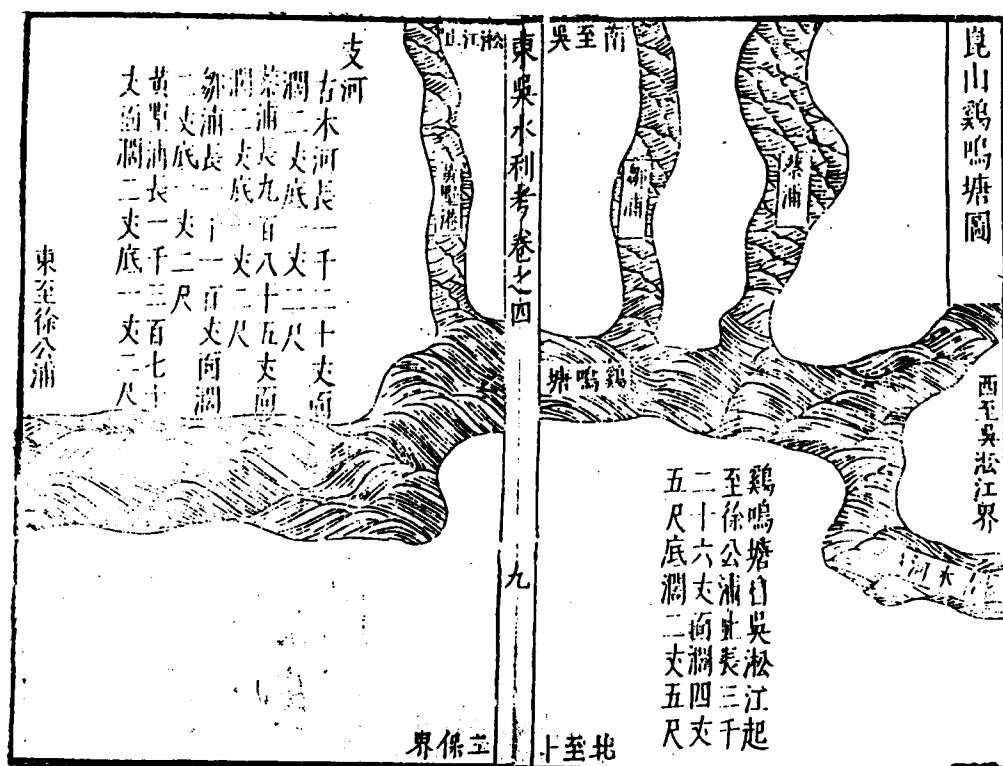 崑山鷄鳴塘圖
西至吳淞江界
木河
柴浦
南至吳
鄒浦
鷄鳴塘
鷄鳴塘自吳淞江起
至徐公浦止長三千
二十六丈面濶四丈
五尺底濶二丈五尺
北至十
東吳水利考卷之四
九
淞江止
黃墅港
支河
右木河長一千二十丈面
濶二丈底一丈二尺
柴浦長九百八十五丈面
濶二丈底一丈二尺
鄒浦長一千一百丈面濶
二丈底一丈二尺
黃墅浦長一千三百七十
丈面濶二丈底一丈二尺
東至徐公浦
保界